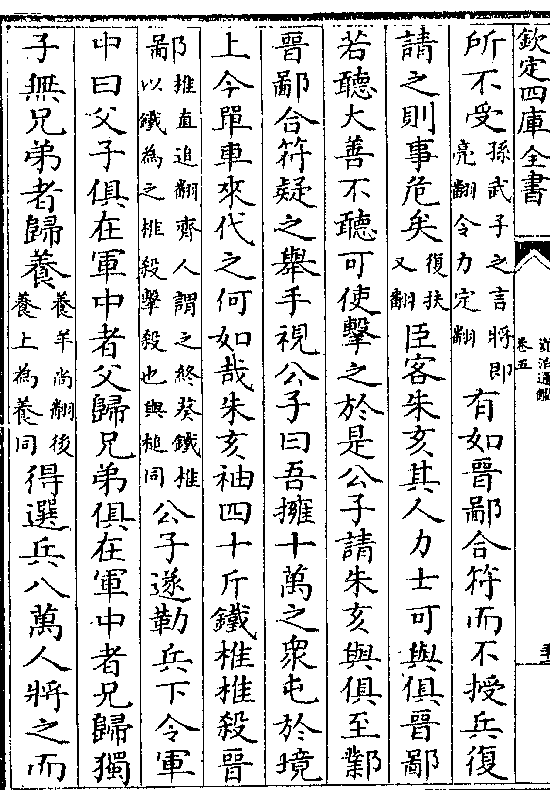 欽定四庫全書
資治通鑑
卷五
所不受孫武子之言將即亮翻令力定翻有如晉鄙合符而不授兵復
請之則事危矣復扶又翻臣客朱亥其人力士可與俱晉鄙
若聽大善不聽可使擊之於是公子請朱亥與俱至鄴
晉鄙合符疑之舉手視公子曰吾擁十萬之衆屯於境
上今單車來代之何如哉朱亥袖四十斤鐵椎椎殺晉
鄙椎直追翻齊人謂之終葵鐵椎以鐵為之椎殺擊殺也與槌同公子遂勒兵下令軍
中曰父子俱在軍中者父歸兄弟俱在軍中者兄歸獨
子無兄弟者歸養養羊尚翻後養上為養同得選兵八萬人將之而